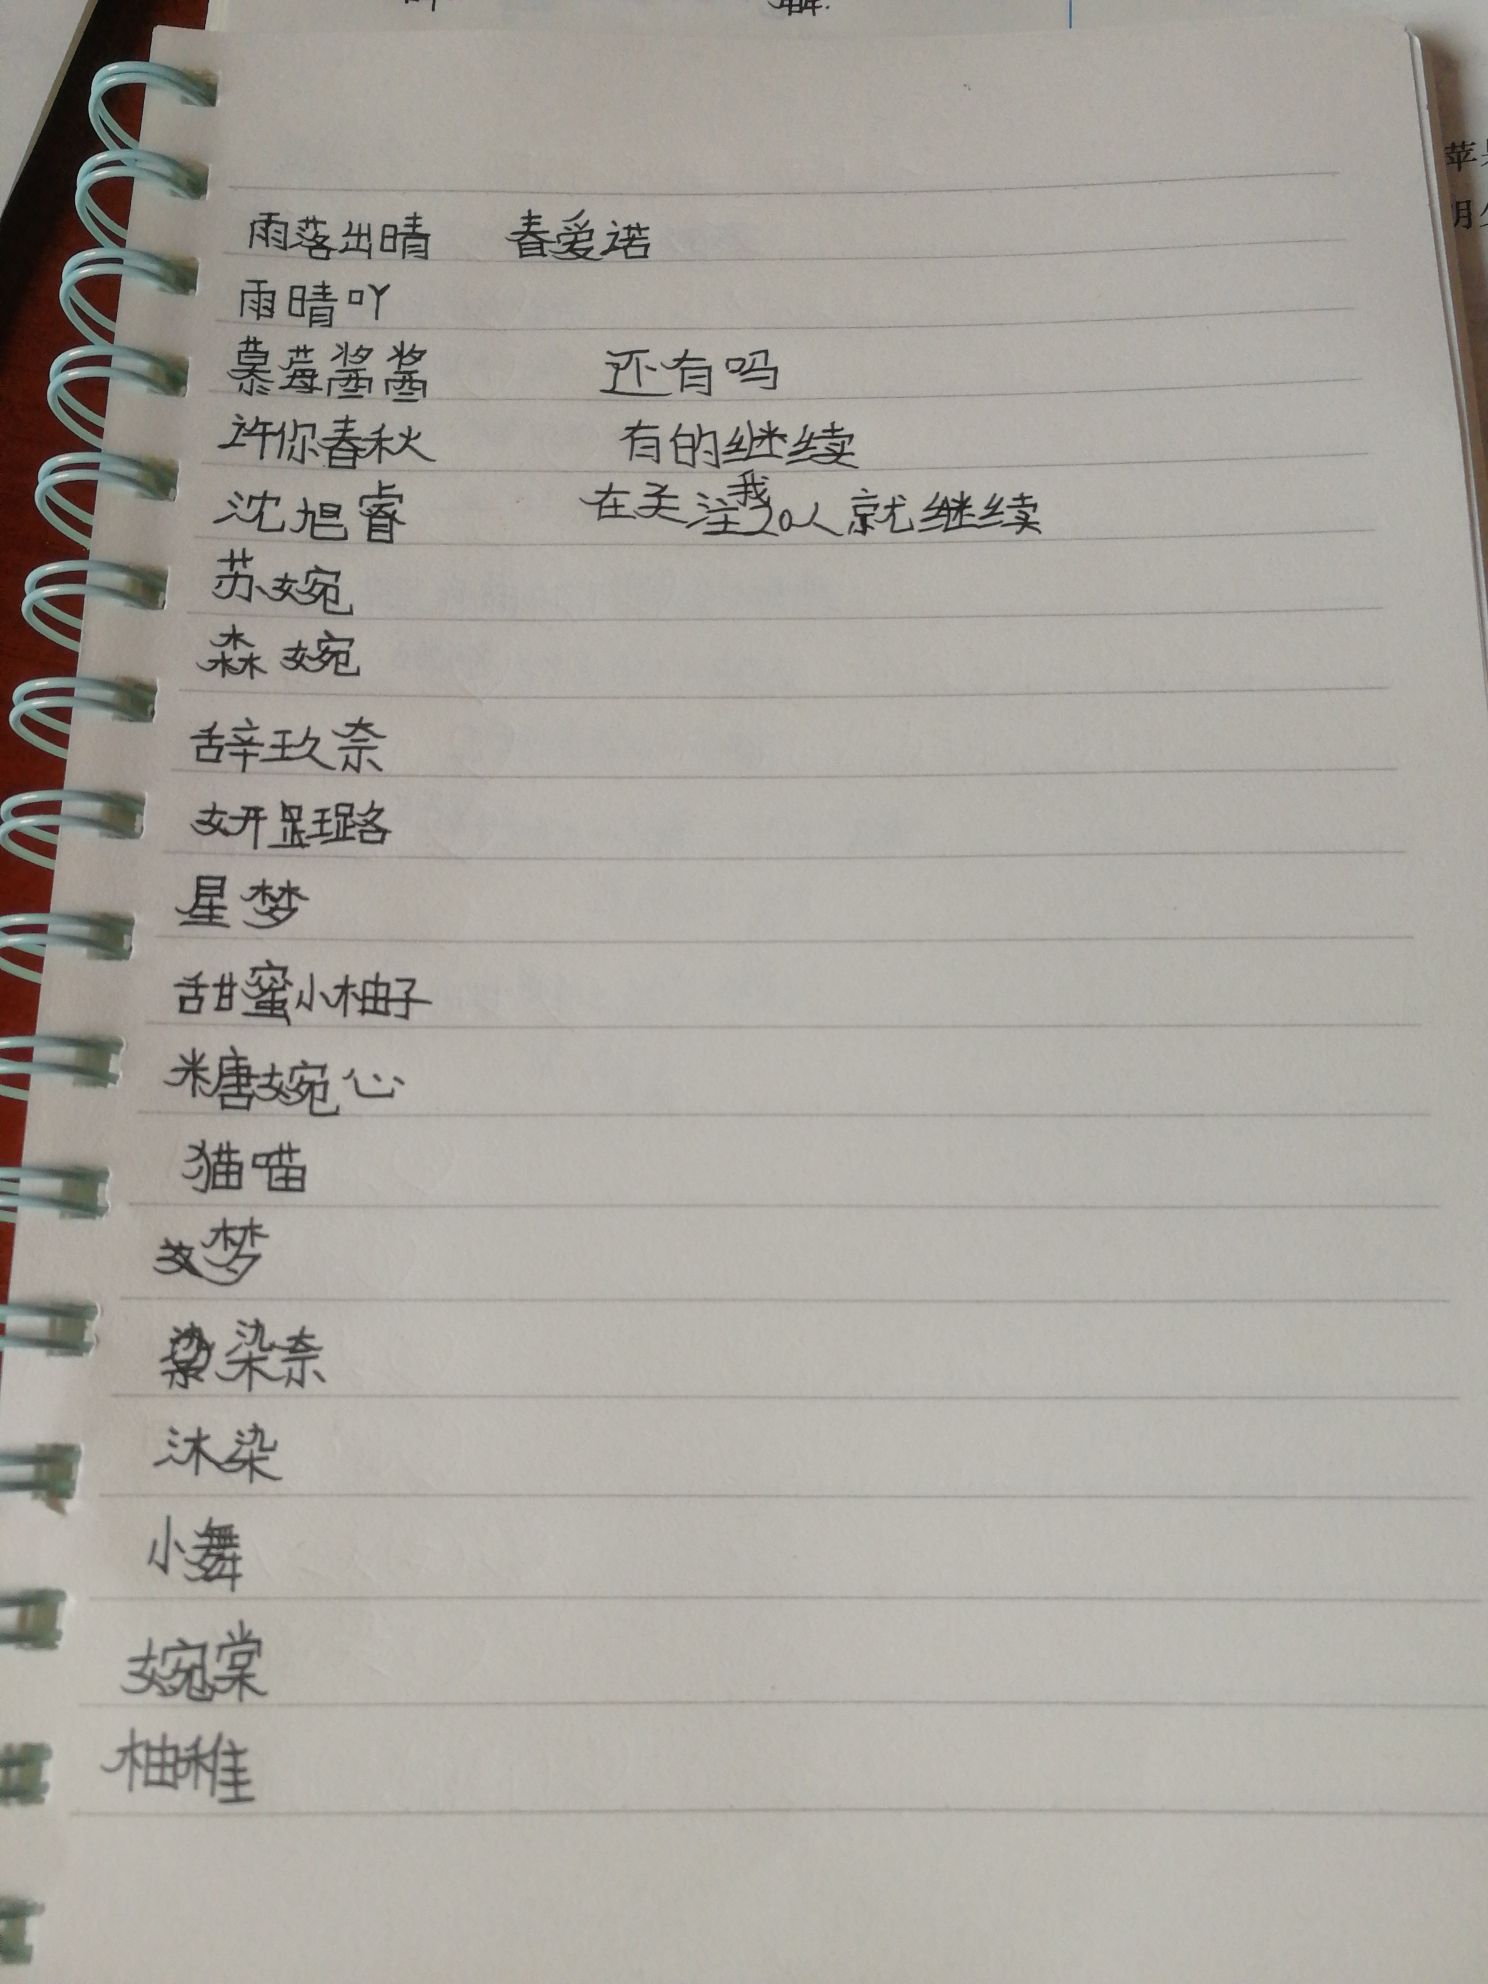 雨落出晴 春爱诺
雨晴吖
慕莓酱酱 还有吗
许你春秋 有的继续
沈旭睿 在关注我20人就继续
苏婉
森婉
辞玖奈
妍显璐
星梦
甜蜜小柚子
糖婉心
猫喵
梦
染奈
沐染
小舞
婉棠
柚稚
苹果